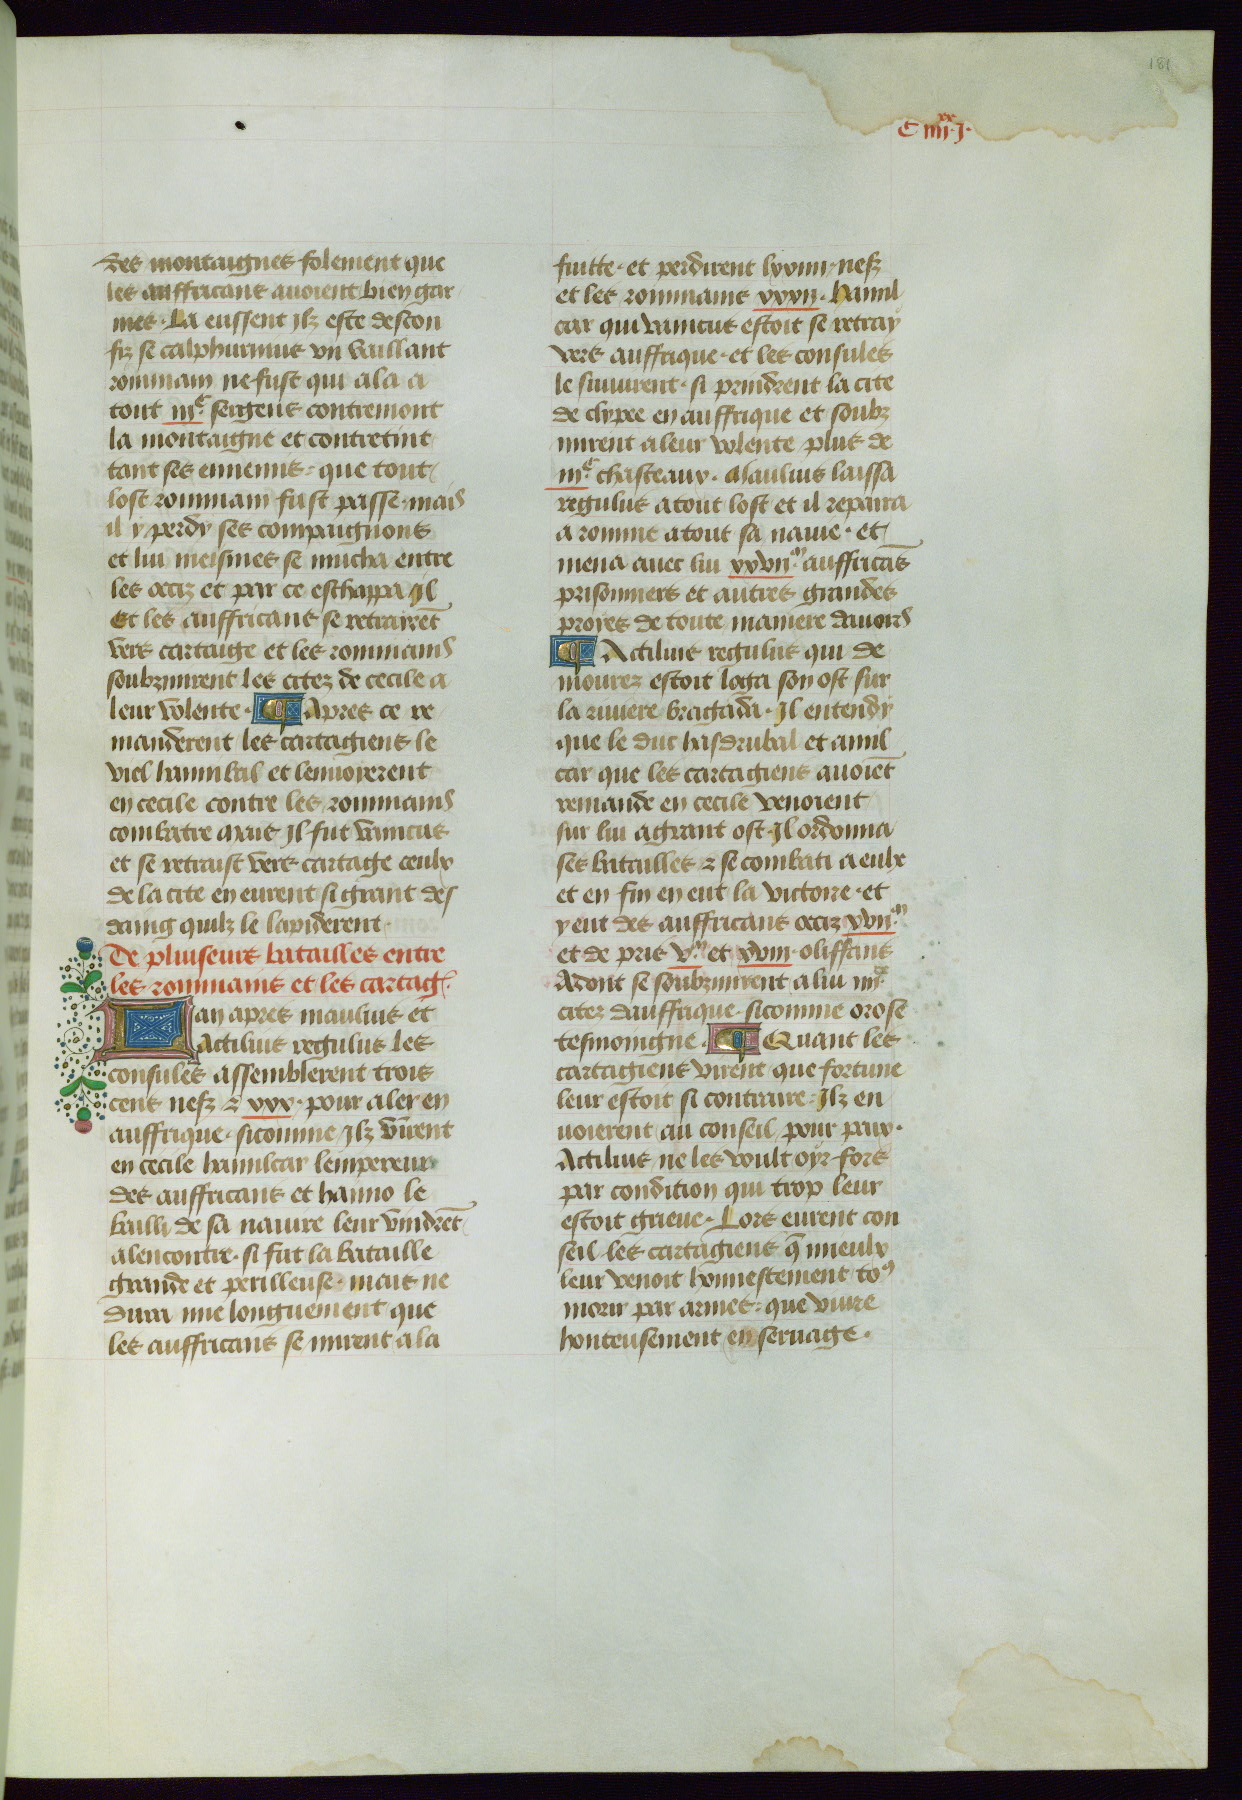 181
C iiii xx j·
des montaignes folement que
les auffricans auoient bien gar
nies · La eussent ilz este descon
fiz se calphurnius vn vaillant
rommain ne fust qui ala a
tout iii c sergens contremont
la montaigne et contretint
tant ses ennemis · que tout
lost rommain fust passe · mais
il y perdy ses compaignons
et lui meismes se mucha entre
les occiz et par ce eschappa il
Et les auffricans se retrairēt
vers cartaige et les rommains
soubzmirent les citez de cecile a
leur volente · ¶ Apres ce re
manderent les cartagiens le
viel hannibal et lenuoyerent
en cecile contre les rommains
combatre mais il fut vaincus
et se retraist vers cartage ceulx
de la cite en eurent si grant des
daing quilz le lapiderent ·
De pluiseurs batailles entre
les rommains et les cartag
an apres maulius et
Actilius regulus les
consules assemblerent trois
cens nefz & xxx · pour aler en
auffrique · sicomme ilz vīrent
en cecile hamilcar lempereur
des auffricans et hanno le
bailli de sa nauire leur vindrēt
alencontre · si fut la bataille
grande et perilleuse · mais ne
dura mie longuement que
les auffricans se mirent a la
fuitte · et perdirent lxiiii · nefz
et les rommains xxxii · hamil
car qui vaincus estoit se retray
vers auffrique · et les consules
le suiuirent · si prindrent la cite
de clypee en auffrique et soubz
mirent a leur volente plus de
iii c chasteaux · Maulius laissa
regulus a tout lost et il repaira
a romme atout sa nauie · et
mena auec lui xxvii m auffricās
prisonniers et autres grandes
proyes de toute maniere dauoirs
¶ Actilius regulus qui de
mourez estoit loga son ost sur
la riuiere bragada · Il entendy
que le duc hasdrubal et amil
car que les cartagiens auoiēt
remande en cecile venoient
sur lui a grant ost · Il ordonna
ses batailles & se combati a eulx
et en fin en eut la victoire · et
y eut des auffricans occiz xvii m
et de pris v m et xviii · oliffans
Adont se soubzmirent a lui iiii xx
citez dauffrique · sicomme orose
tesmoingne · ¶ Quant les
cartagiens virent que fortune
leur estoit si contraire · Ilz en
uoierent au conseil pour paix ·
Actilius ne les voult oyr fors
par condition qui trop leur
estoit grieue · Lors eurent con
seil les cartagiens q̄ mieulx
leur venoit honnestement to9
morir par armes · que viure
honteusement en seruage ·